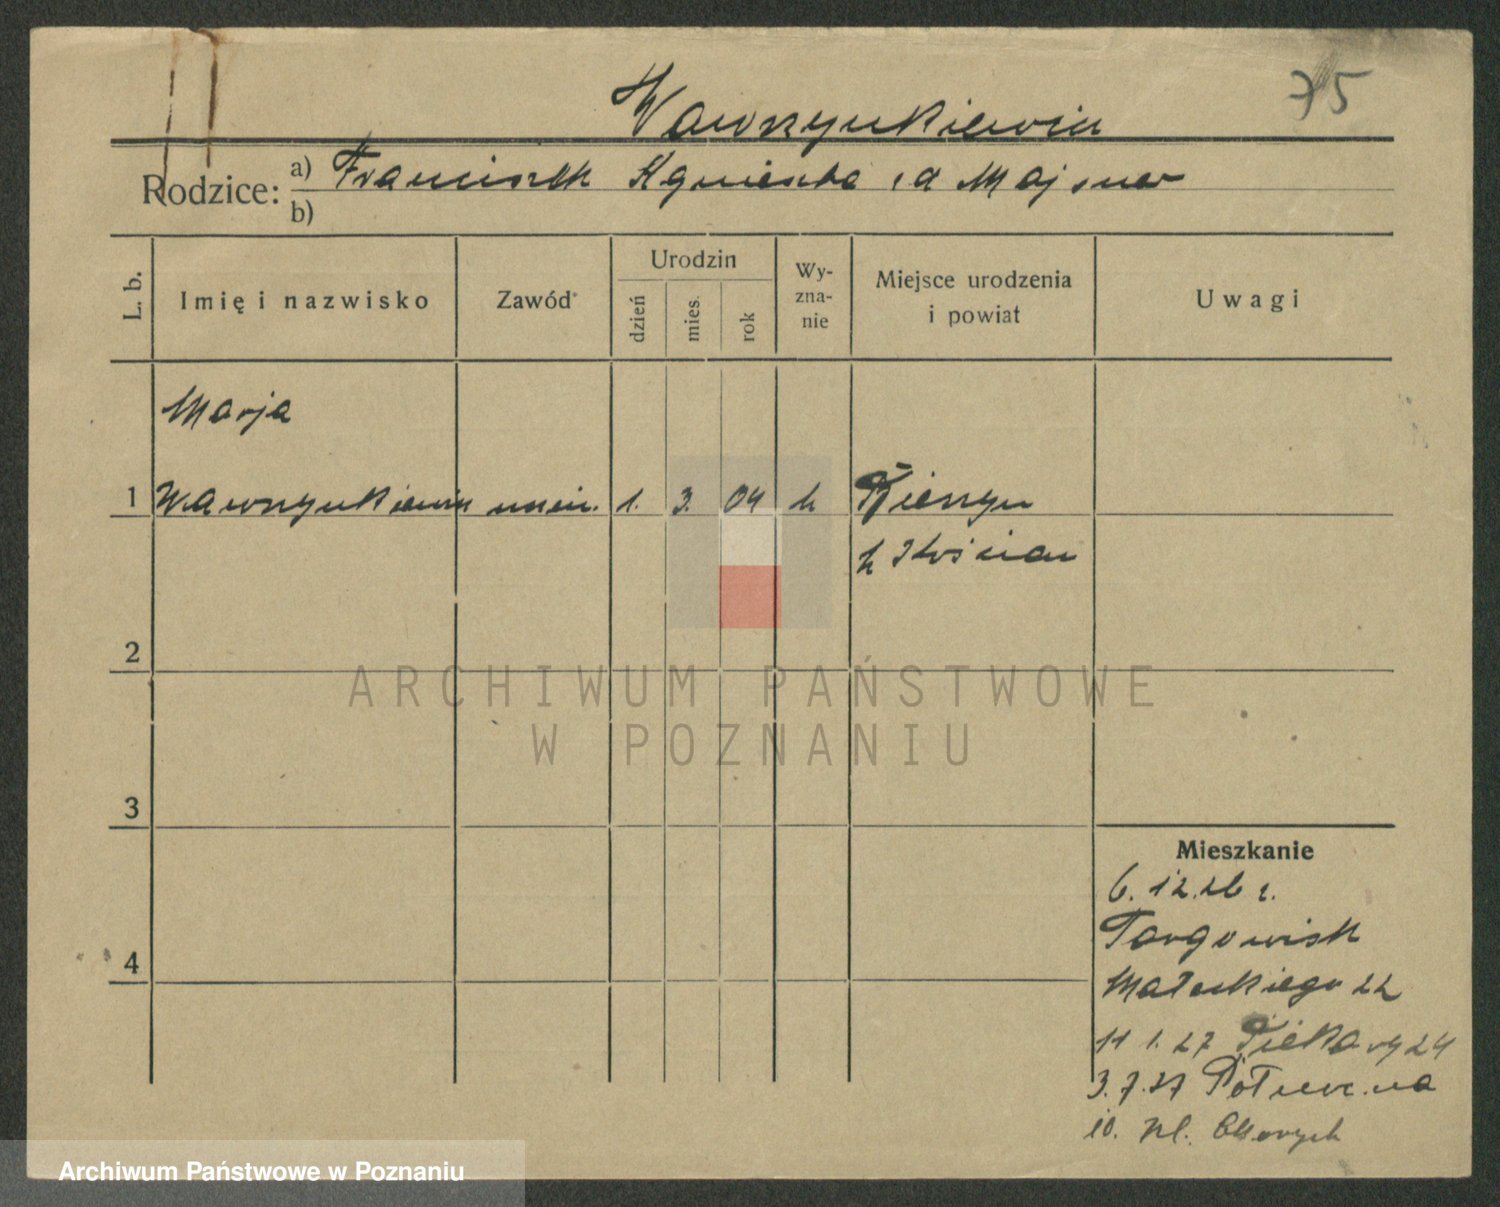 75
Wawrzynkiewicz
Rodzice: a) Franciszek Agnieszka
b)
L. b. Imię i nazwisko Zawód Urodzin dzień mies. rok Wyznanie Miejsce urodzenia i powiat Uwagi
Marja
1 Wawrzynkiewicz 1. 3. 04 k
2
3
4
Mieszkanie
6. 12. 26 r.
Targowisk
Małeckiego 22
11 1. 27 Piekary 24
3. 7. 27
10. pl.
ARCHIWUM PAŃSTWOWE
W POZNANIU
Archiwum Państwowe w Poznaniu